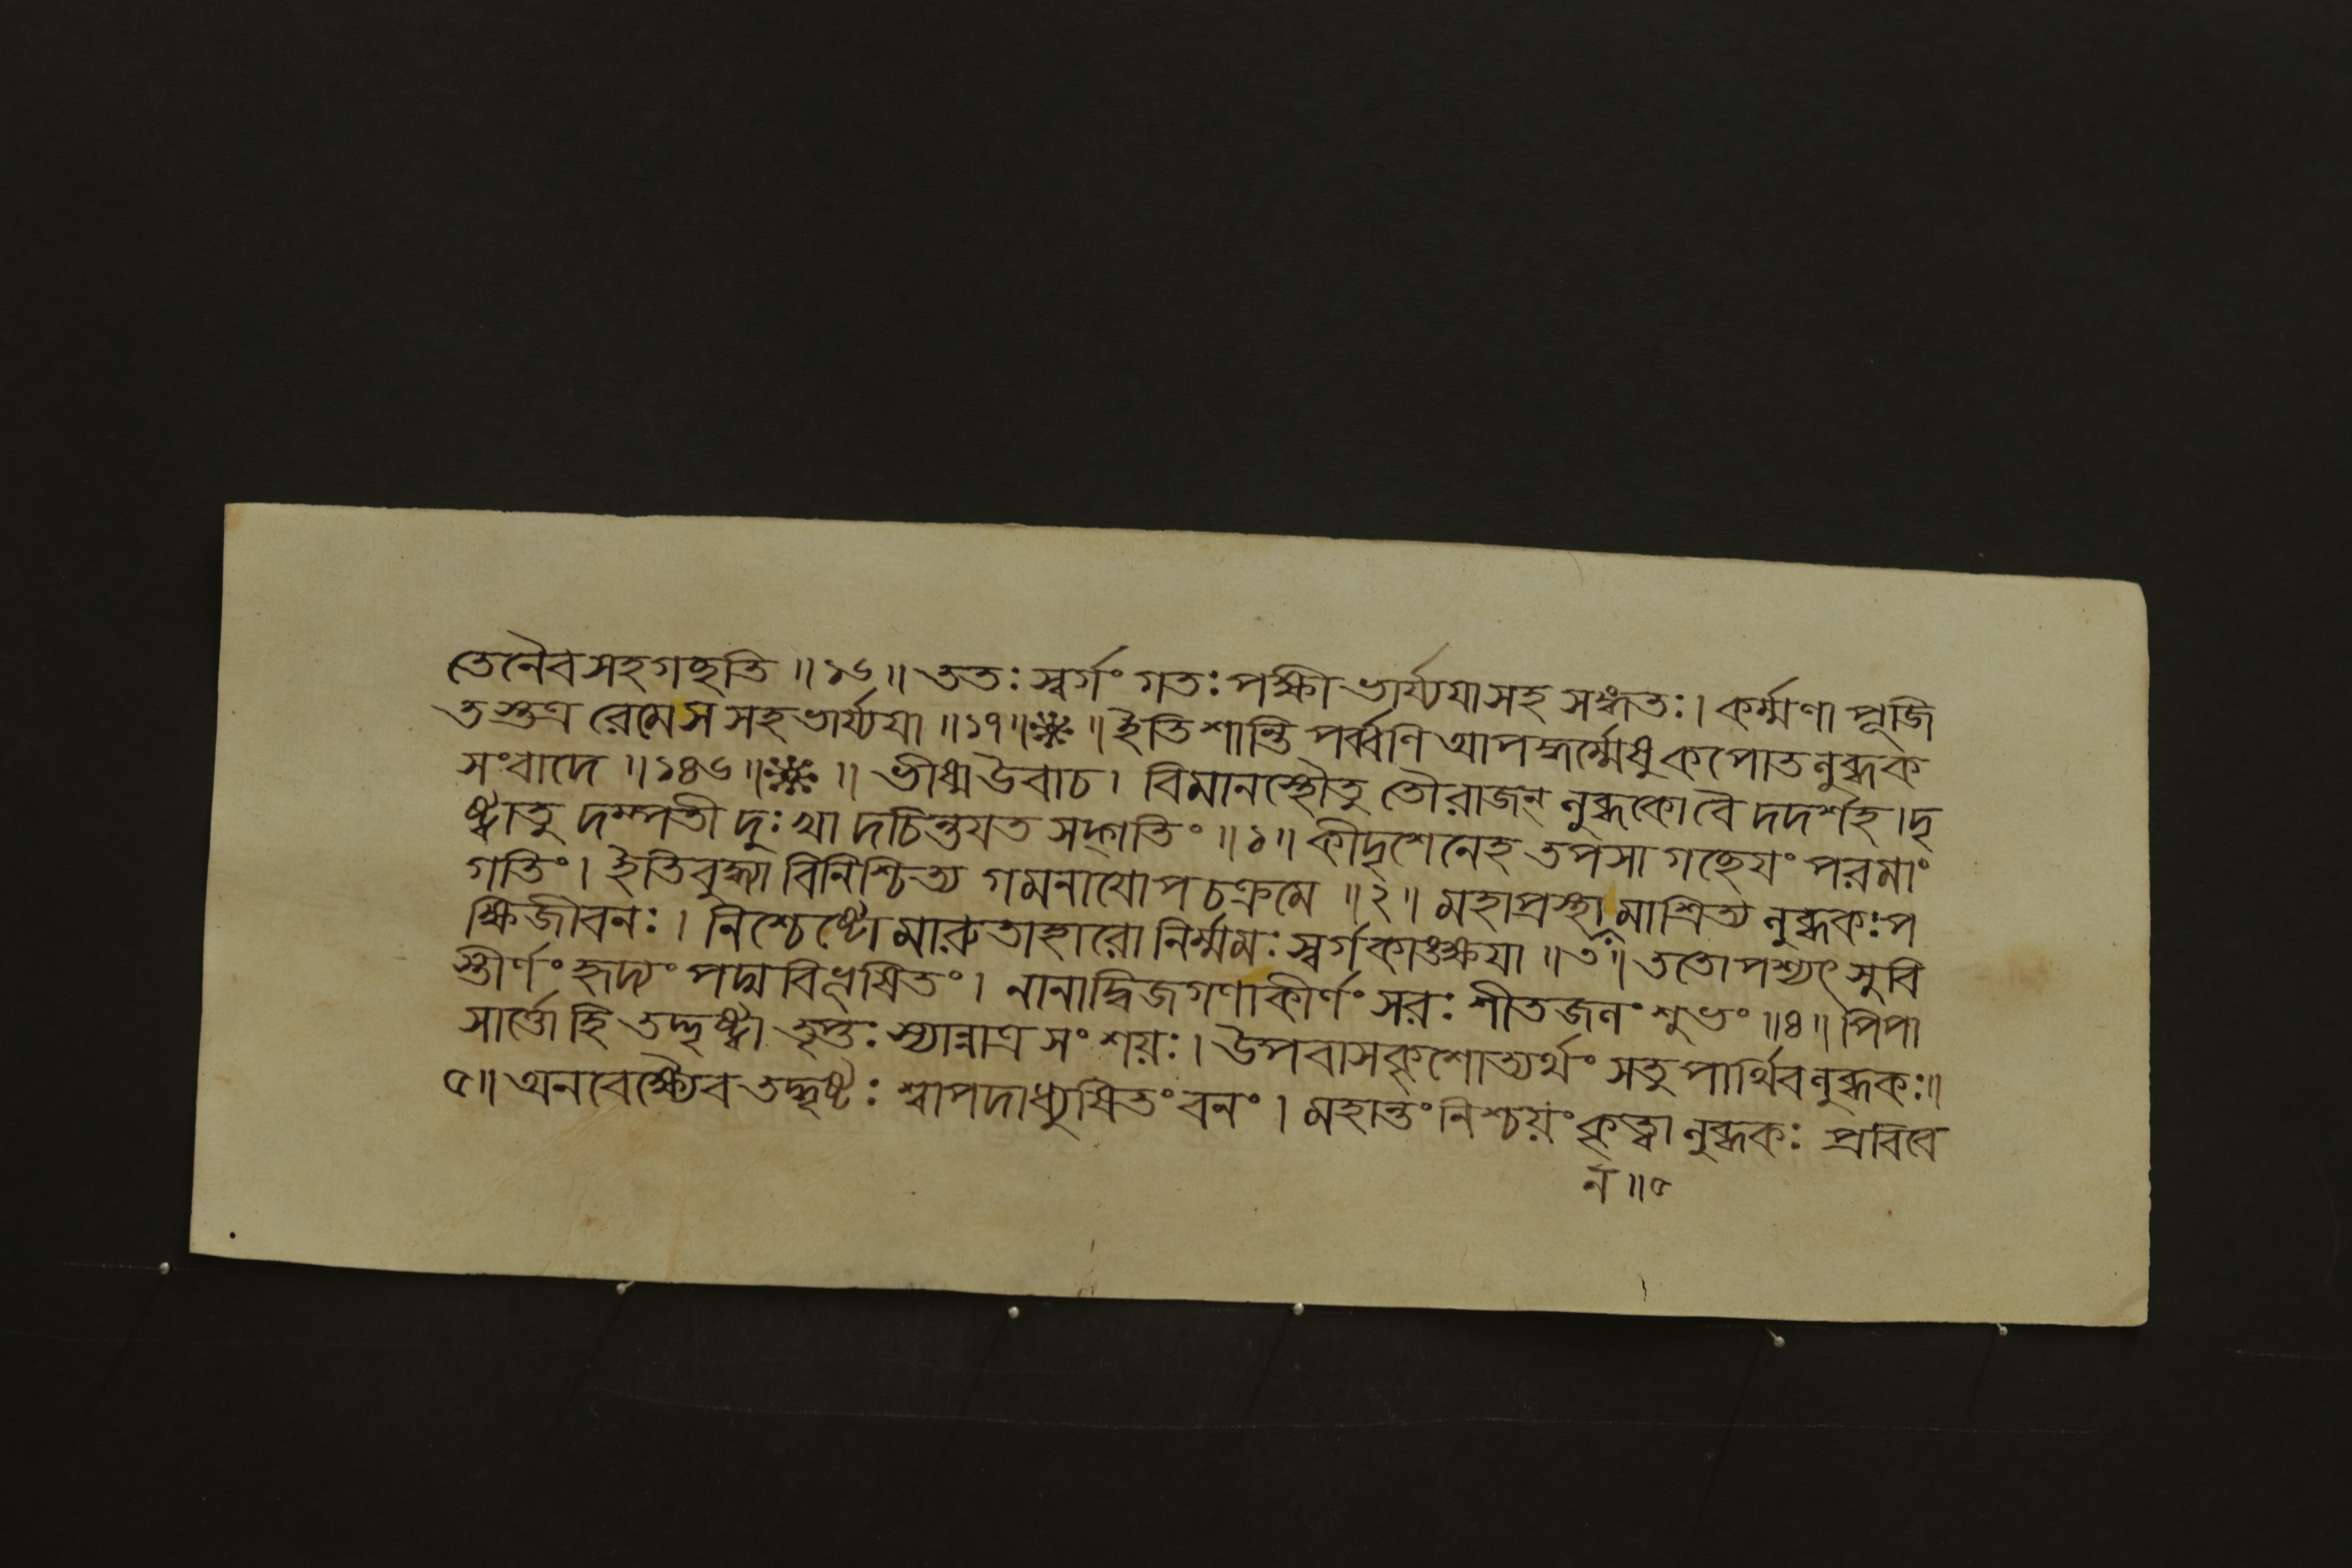 তেনৈব সহ গচ্ছতি ॥ ১৬ ॥ ততঃ স্বর্গং গতঃ পক্ষী ভার্য্যযা সহ সঙ্গতঃ । কর্ম্মণা পূজি
তস্তত্র রেমে স সহ ভার্য্যযা ॥ ১৭ ॥ ❈ ॥ ইতি শান্তিপর্ব্বণি আপদ্ধর্ম্মেষু কপোতলুব্ধক
সংবাদে ॥ ১৪৬ ॥ ❈ ॥ ভীষ্ম উবাচ । বিমানস্থৌ তু তৌ রাজন্ লুব্ধকো বৈ দদর্শহ । দৃ
ষ্ট্বা তু দম্পতী দুঃখাদচিন্তযত সদ্গতিং ॥ ১ ॥ কীদৃশেনেহ তপসা গচ্ছেযং পরমাং
গতিং । ইতি বুদ্ধ্যা বিনিশ্চিত্য গমনাযোপচক্রমে ॥ ২ ॥ মহাপ্রস্থামাশ্রিত্য লুব্ধকঃ প
ক্ষিজীবনঃ । নিশ্চেষ্টো মারুতাহারো নির্ম্মমঃ স্বর্গকাঙ্ক্ষযা ॥ ৩ ॥ ততোপশ্যৎ সুবি
স্তীর্ণং হৃদ্যং পদ্মবিভূষিতং । নানাদ্বিজগণাকীর্ণং সরঃ শীতজলং শুভং ॥ ৪ ॥ পিপা
সার্ত্তো হি তদ্দৃষ্ট্বা তৃপ্তঃ স্যান্নাত্র সংশয়ঃ । উপবাসকৃশোত্যর্থং স তু পার্থিব লুব্ধকঃ ॥
৫ ॥ অনবেক্ষ্যৈব তদ্ধৃষ্টঃ শ্বাপদাধ্যুষিতং বনং । মহান্তং নিশ্চয়ং কৃত্বা লুব্ধকঃ প্রবিবে
ন ॥ ৫